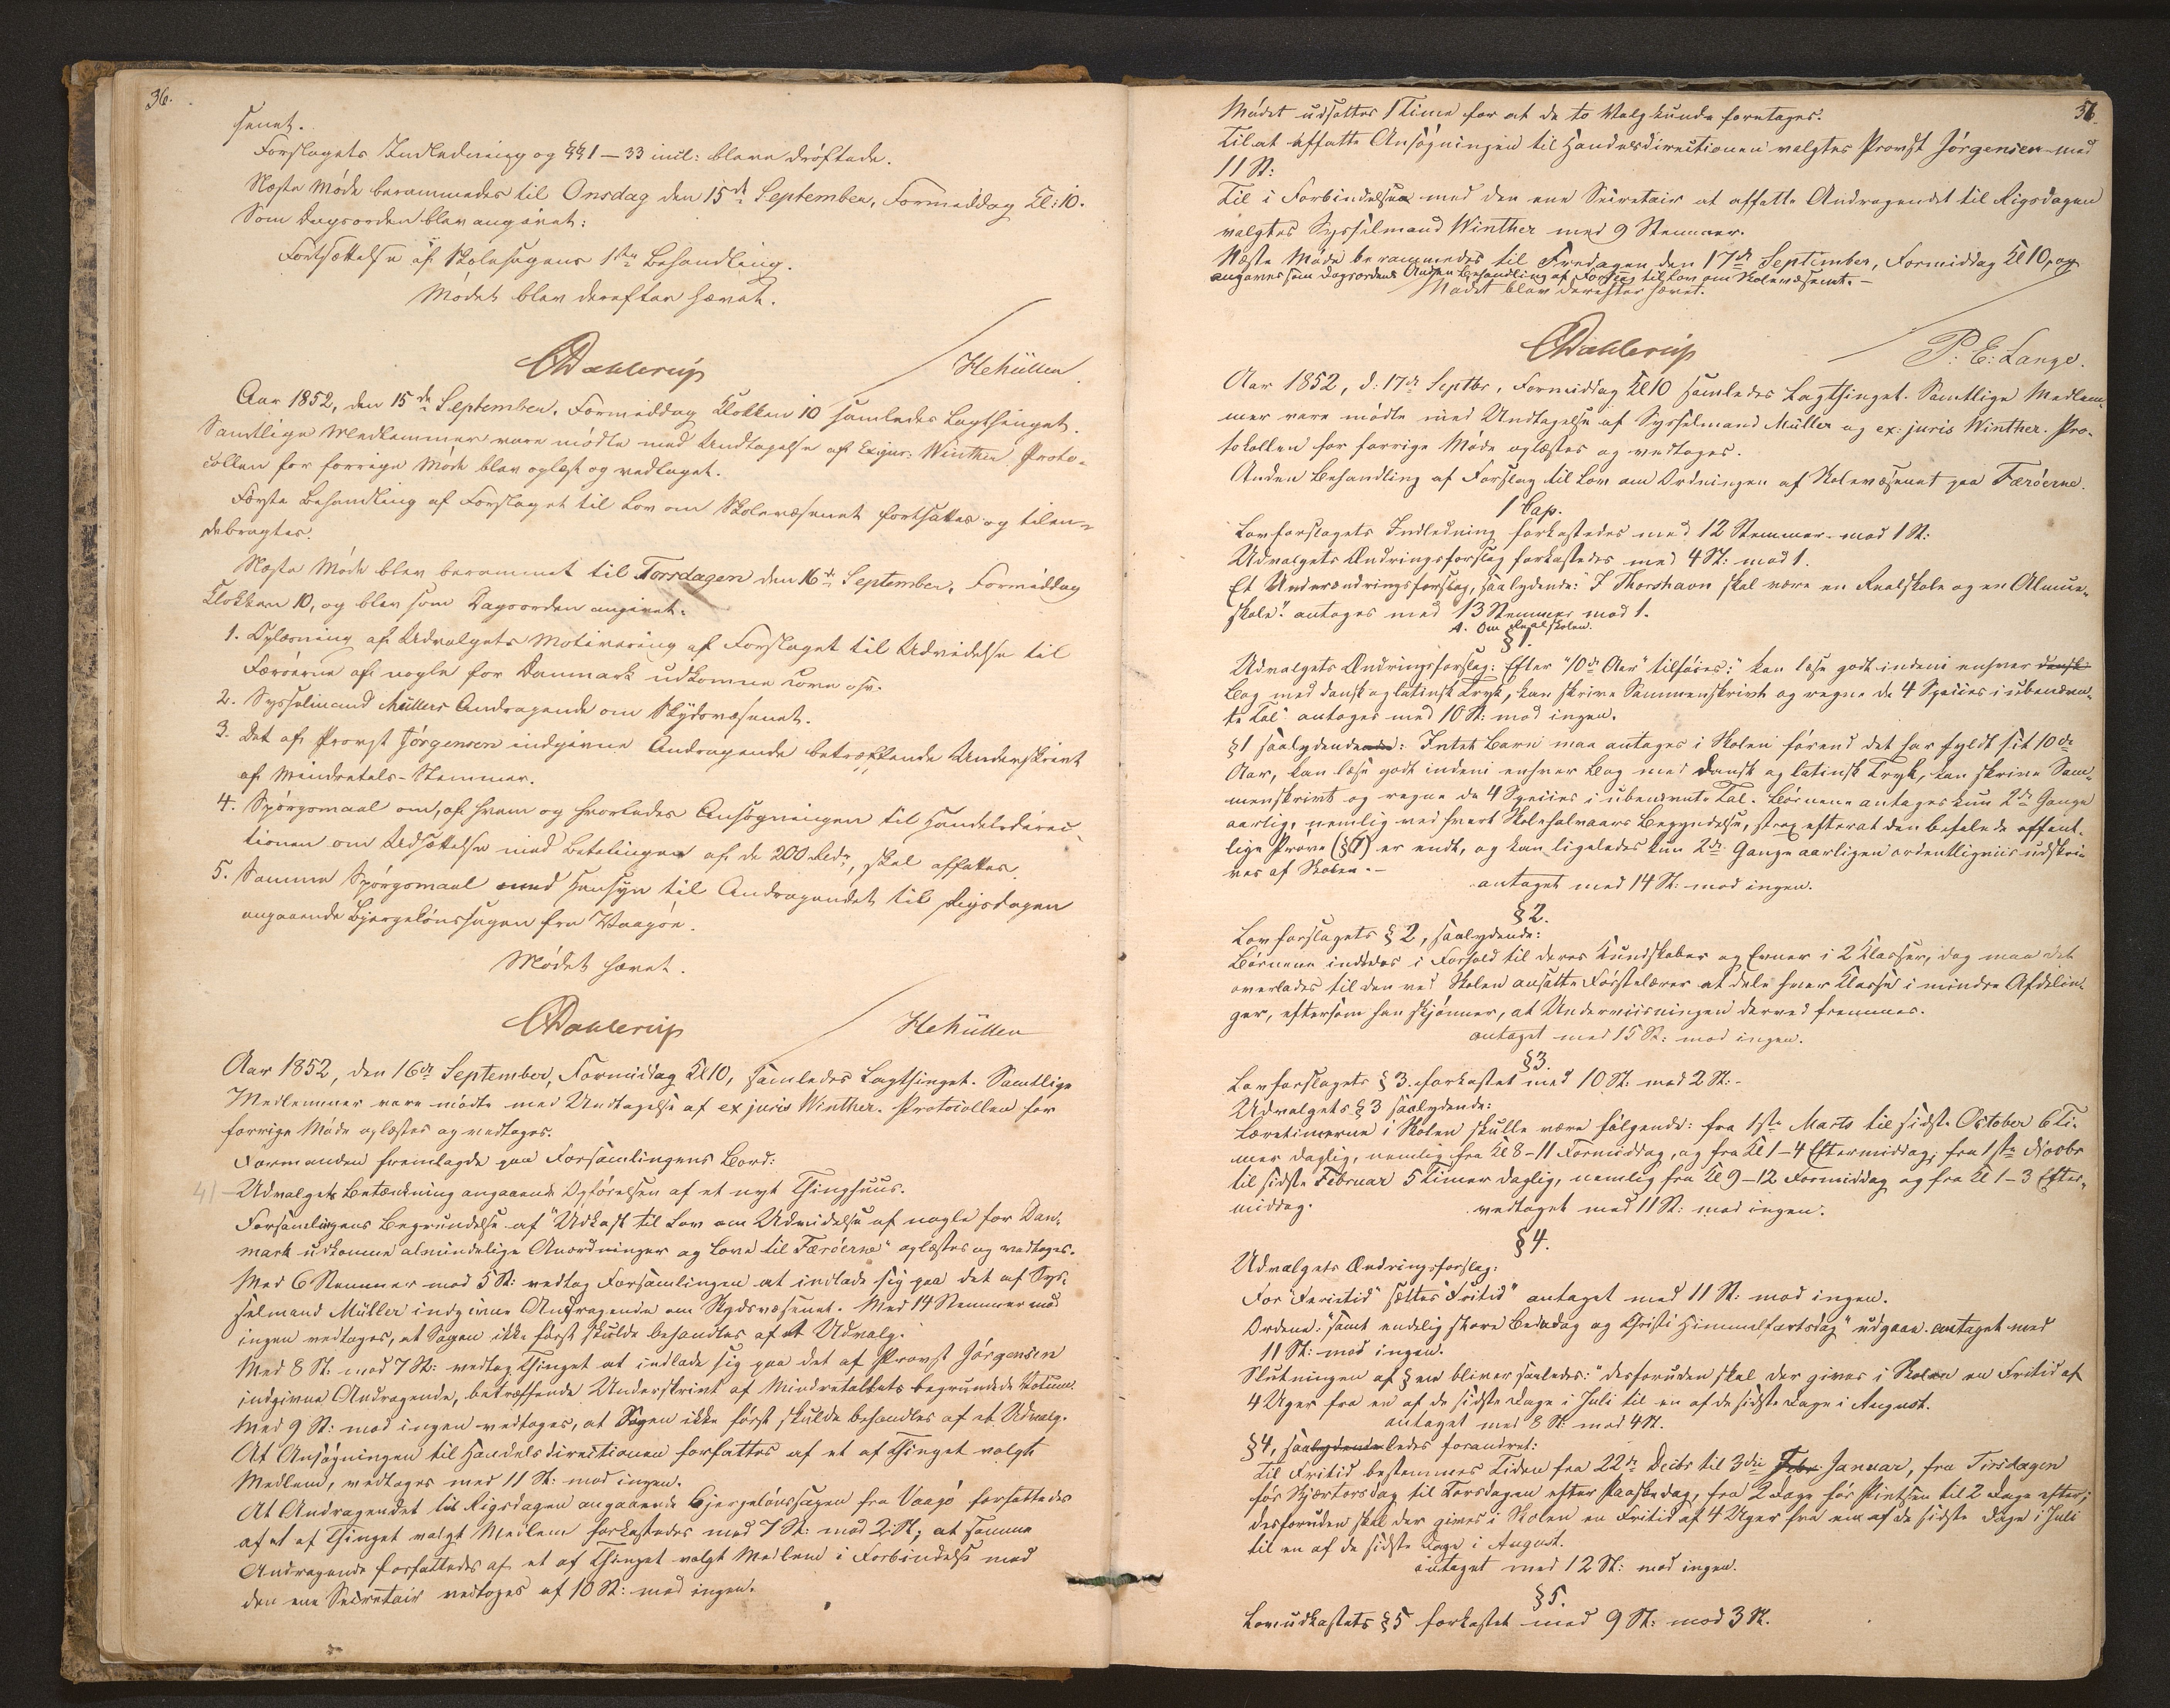 36.
senet.
Forslagets Indledning og §§ 1 — 33 incl: bleve drøftede.
Næste Møde berammedes til Onsdag den 15de September, Formiddag Kl: 10.
Som Dagsorden blev angivet:
Fortsættelse af Skolesagens 1ste Behandling.
Mødet blev derefter hævet.
CDahlerup HCMüller
Aar 1852, den 15de September, Formiddag Klokken 10 samledes Lagthinget.
Samtlige Medlemmer vare mødte med Undtagelse af Exjur: Winther. Proto-
collen for forrige Møde blev oplæst og vedtaget.
Første Behandling af Forslaget til Lov om Skolevæsenet fortsattes og tilen-
debragtes.
Næste Møde blev berammet til Torsdagen den 16de September, Formiddag
Klokken 10, og blev som Dagsorden angivet:
1. Oplæsning af Udvalgets Motivering af Forslaget til Udvidelse til
Færøerne af nogle for Danmark udkomne Love osv.
2. Sysselmand Müllers Andragende om Skydsvæsenet.
3. Det af Provst Jørgensen indgivne Andragende betræffende Underskrivt
af Mindretals-Stemmer.
4. Spørgsmaal om, af hvem og hvorledes Ansøgningen til Handelsdirec-
tionen om Udsættelse med Betalingen af de 200 Rbdr, skal affattes.
5. Samme Spørgsmaal med Hensyn til Andragendet til Rigsdagen
angaaende Bjergelønssagen fra Vaagøe.
Mødet hævet.
CDahlerup HCMüller
Aar 1852, den 16de September, Formiddag Kl 10, samledes Lagthinget. Samtlige
Medlemmer vare mødte med Undtagelse af ex juris Winther. Protocollen for
forrige Møde oplæstes og vedtoges.
Formanden fremlagde paa Forsamlingens Bord:
41 Udvalgets Betænkning angaaende Opførelsen af et nyt Thinghuus.
Forsamlingens Begrundelse af "Udkast til Lov om Udvidelse af nogle for Dan-
mark udkomne almindelige Anordninger og Love til Færøerne" oplæstes og vedtoges.
Med 6 Stemmer mod 5 St: vedtog Forsamlingen at indlade sig paa det af Sys-
selmand Müller indgivne Andragende om Skydsvæsenet. Med 14 Stemmer mod
ingen vedtoges, at Sagen ikke først skulde behandles af et Udvalg.
Med 8 St: mod 7 St: vedtog Thinget at indlade sig paa det af Provst Jørgensen
indgivne Andragende, betræffende Underskrivt af Mindretallets begrundede Votum.
Med 9 St: mod ingen vedtoges, at Sagen ikke først skulde behandles af et Udvalg.
At Ansøgningen til Handelsdirectionen forfattes af et af Thinget valgt
Medlem, vedtoges med 11 St: mod ingen.
At Andragendet til Rigsdagen angaaende Bjergelønssagen fra Vaagø forfattedes
af et af Thinget valgt Medlem forkastedes med 7 St: mod 2 St; at samme
Andragende forfattedes af et af Thinget valgt Medlem i Forbindelse med
den ene Secretair vedtoges af 10 St: mod ingen.
Mødet udsattes 1 Time for at de to Valg kunde foretages.
Til at affatte Ansøgningen til Handelsdirectionen valgtes Provst Jørgensen med
11 St:
Til i Forbindelse med den ene Secretair at affatte Andragendet til Rigsdagen
valgtes Sysselmand Winther med 9 Stemmer.
Næste Møde berammedes til Fredagen den 17de September, Formiddag Kl 10, og
angaves som Dagsorden Anden Behandling af Forslag til Lov om Skolevæsenet. —
Mødet blev derefter hævet.
CDahlerup P: E: Lange.
Aar 1852, d: 17de Septbr, Formiddag Kl 10 samledes Lagthinget. Samtlige Medlem-
mer vare mødte med Undtagelse af Sysselmand Müller og ex: juris Winther. Pro-
tokollen for forrige Møde oplæstes og vedtoges.
Anden Behandling af Forslag til Lov om Ordningen af Skolevæsenet paa Færøerne.
1 Cap.
Lovforslagets Indledning forkastedes med 12 Stemmer mod 1 St:
Udvalgets Ændringsforslag forkastedes med 4 St: mod 1.
Et Underændringsforslag, saalydende: "I Thorshavn skal være en Realskole og en Almue-
skole" antoges med 13 Stemmer mod 1.
A. Om Realskolen.
§ 1.
Udvalgets Ændringsforslag: Efter "10de Aar" tilføies: "kan læse godt indeni enhver dansk
Bog med dansk og latinsk Tryk, kan skrive Sammenskrivt og regne de 4 Species i ubenævn-
te Tal" antoges med 10 St: mod ingen.
§ 1 saalydende: Intet Barn maa antages i Skolen førend det har fyldt sit 10de
Aar, kan læse godt indeni enhver Bog med dansk og latinsk Tryk, kan skrive Sam-
menskrivt og regne de 4 Species i ubenævnte Tal. Børnene antages kun 2de Gange
aarlig, nemlig ved hvert Skolehalvaars Begyndelse, strax efterat den befalede offent-
lige Prøve er endt, og kan ligeledes kun 2de Gange aarligen ordentligviis udskri-
ves af Skolen. —
antaget med 14 St: mod ingen.
§ 2.
Lovforslagets § 2, saalydende:
Børnene inddeles i Forhold til deres Kundskaber og Evner i 2 Klasser, dog maa det
overlades til den ved Skolen ansatte Førstelærer at dele hver Klasse i mindre Afdelin-
ger, eftersom han skjønner, at Underviisningen derved fremmes.
antaget med 15 St: mod ingen.
§ 3.
Lovforslagets § 3. forkastet med 10 St: mod 2 St:
Udvalgets § 3 saalydende:
Læretimerne i Skolen skulle være følgende: fra 1ste Marts til sidste October 6 Ti-
mer daglig, nemlig fra Kl 8 – 11 Formiddag, og fra Kl 1 – 4 Eftermiddag; fra 1ste Novbr
til sidste Februar 5 Timer daglig, nemlig fra Kl 9 – 12 Formiddag og fra Kl 1 – 3 Efter-
middag. vedtaget med 11 St: mod ingen.
§ 4.
Udvalgets Ændringsforslag:
For "Ferietid" sættes "Fritid" antaget med 11 St: mod ingen.
Ordene: "samt endelig store Bededag og Christi Himmelfartsdag" udgaae. antaget med
11 St: mod ingen.
Slutningen af §en bliver saaledes: "desforuden skal der gives i Skolen en Fritid af
4 Uger fra en af de sidste Dage i Juli til en af de sidste Dage i August.
antaget med 8 St: mod 4 St.
§ 4, saaledes forandret:
Til Fritid bestemmes Tiden fra 22de Decbr til 3die Febr. Januar, fra Tirsdagen
før Skjærtorsdag til Torsdagen efter Paaskedag, fra 2 Dage før Pintsen til 2 Dage efter;
desforuden skal der gives i Skolen en Fritid af 4 Uger fra en af de sidste Dage i Juli
til en af de sidste Dage i August.
antaget med 12 St: mod ingen.
§ 5.
Lovudkastets § 5 forkastet med 9 St: mod 3 St.